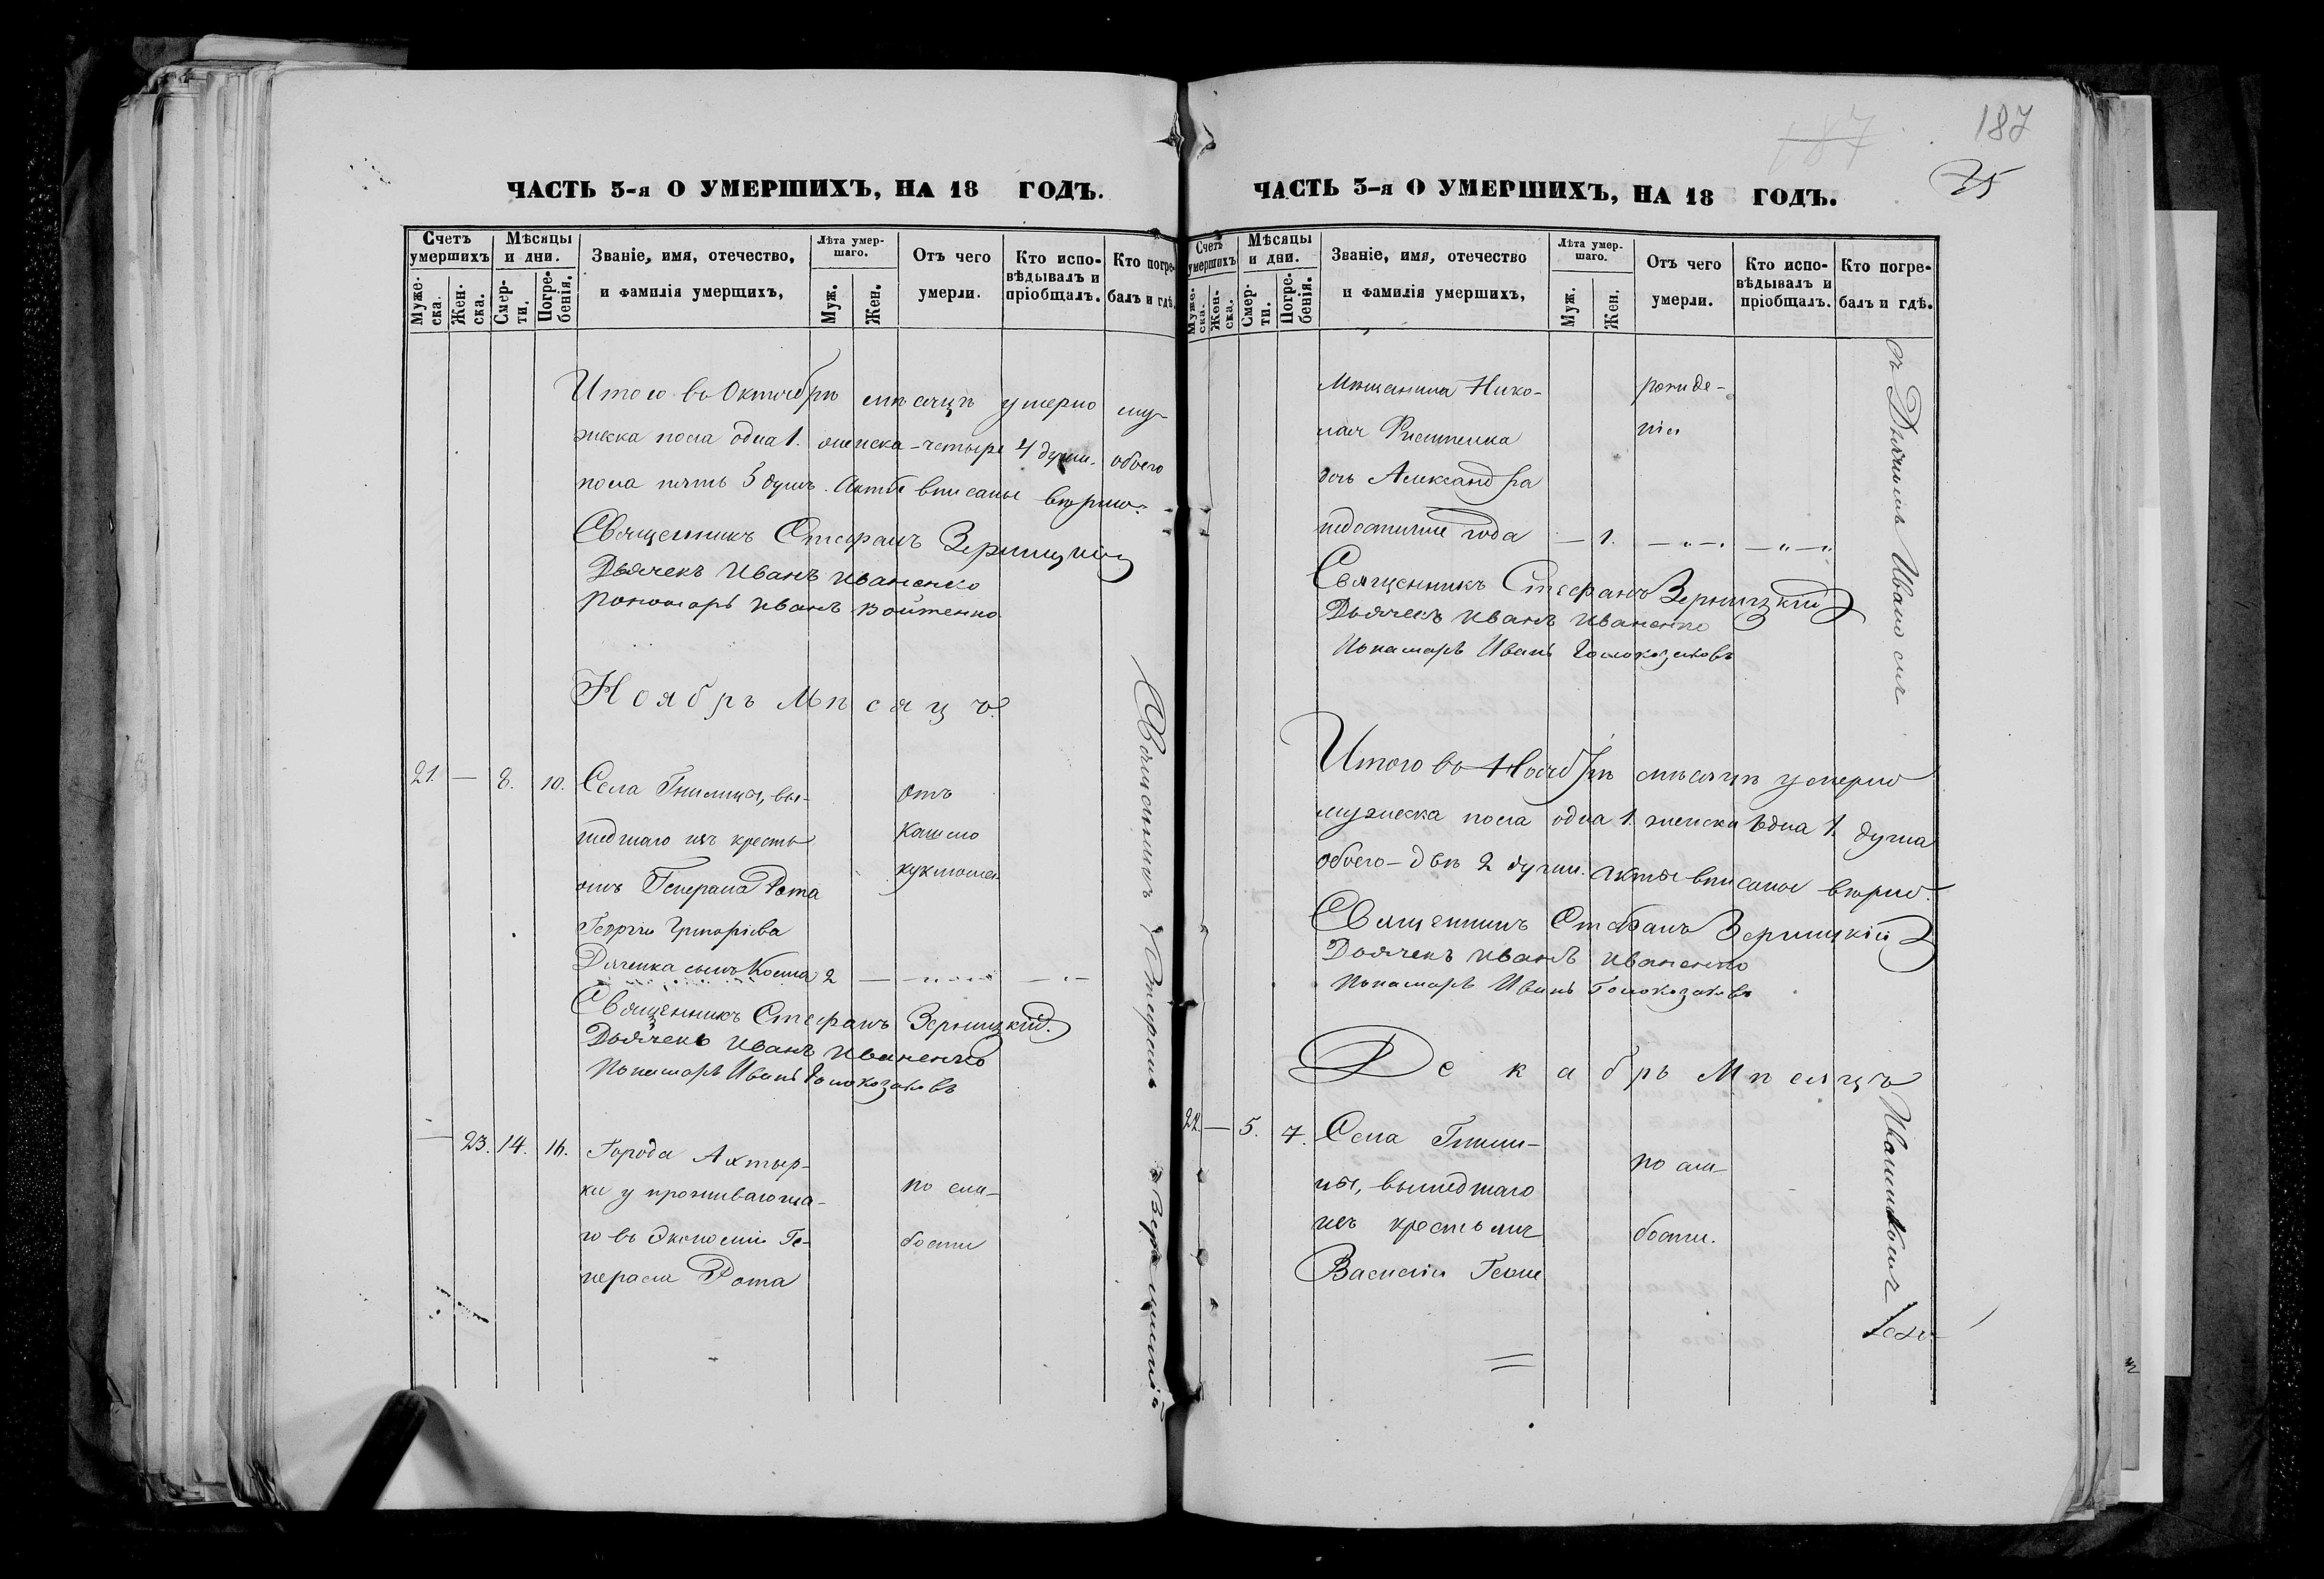 ЧАСТЬ 3-я О УМЕРШИХЪ, НА 18 ГОДЪ.
Счетъ умершихъ
Муже-ска.
Жен-ска.
Мѣсяцы и дни.
Смер-ти.
Погре-бенія.
Званіе, имя, отечество,
и фамилія умерщихъ,
Лѣта умер-шаго.
Муж.
Жен.
Отъ чего
умерли.
Кто испо-
вѣдывалъ и
пріобщалъ.
Кто погре-
балъ и гдѣ.
Итого въ Октябрѣ мѣсяцѣ умерло му-
жеска пола одна 1. женска – четыре 4 души, обоего
пола пять 5 душъ. Актъ вписаны вѣрно.
Священникъ Стефанъ Зерницкій
Дьячекъ Иванъ Иваненко
Пономарь Иванъ Войтенко.
Ноябрь Мѣсяцъ.
21. — 8. 10. Села Гнилицы, вы-
шедшаго изъ кресть
янъ Генерала Рота
Георгія Григоріева
Дяченка сынъ Косма 2
отъ
кашлю
Священникъ Стефанъ Зерницкій.
Дьячекъ Иванъ Иваненко
Понамарь Иванъ Голоказаковъ
— 23. 14. 16. Города Ахтыр-
ки у проживающа-
го въ Экономіи Ге-
нерала Рота
по сла-
бости
Священникъ Стефанъ Зерницкій
187
187
35
ЧАСТЬ 3-я О УМЕРШИХЪ, НА 18 ГОДЪ.
Счетъ умершихъ
Муже-ска.
Жен-ска.
Мѣсяцы и дни.
Смер-ти.
Погре-бенія.
Званіе, имя, отечество
и фамилія умершихъ,
Лѣта умер-шаго.
Муж.
Жен.
Отъ чего
умерли.
Кто испо-
вѣдывалъ и
пріобщалъ.
Кто погре-
балъ и гдѣ.
Мѣщанина Нико-
лая
дочь Александра
года — 1.
рожде-
нія
Священникъ Стефанъ Зерницкій
Дьячекъ Иванъ Иваненко
Понамарь Иванъ Голоказаковъ
Итого въ Ноябрѣ мѣсяцѣ умерло
мужеска пола одна 1. женска одна 1. душа
обоего – двѣ 2 души. Актъ вписаны вѣрно.
Священникъ Стефанъ Зерницкій
Дьячекъ Иванъ Иваненко
Понамарь Иванъ Голоказаковъ
Декабрь Мѣсяцъ
22. — 5. 7. Села Гнили-
цы, вышедшаго
изъ крестьянъ
Василія
по сла-
бости.
съ Дьячкомъ